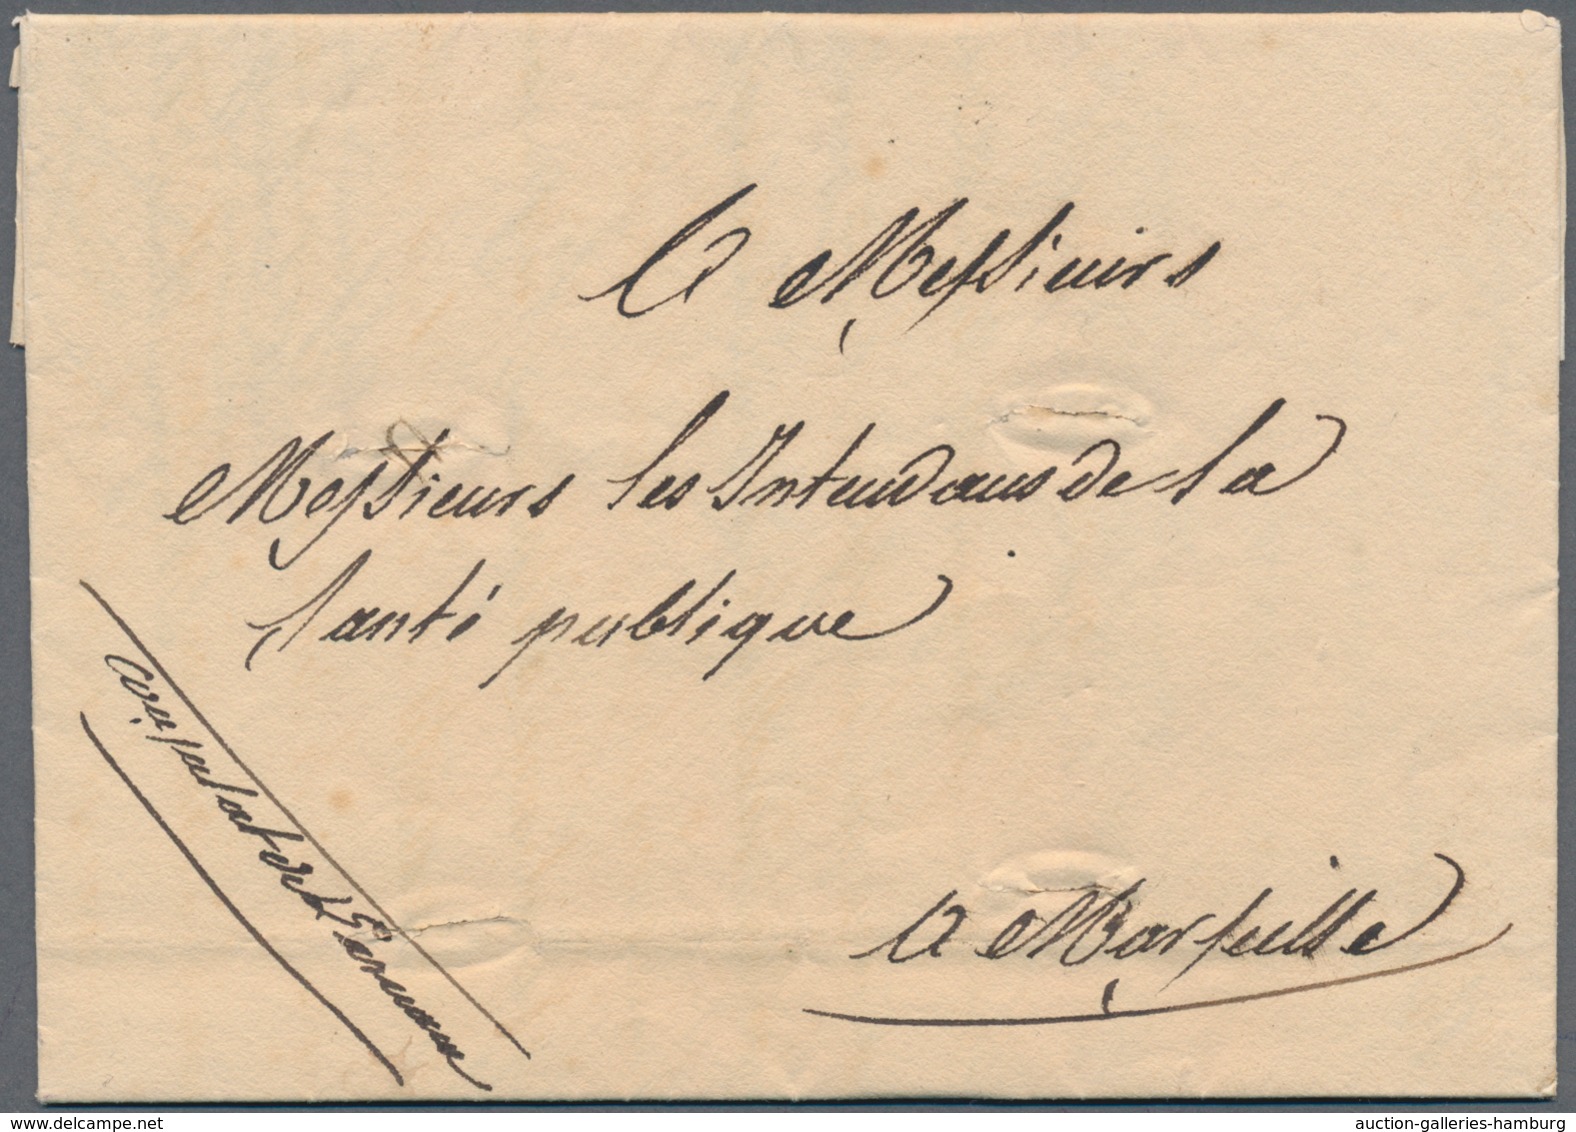 A Messieurs
Messieurs les Intendans de la
Santé publique
A Marseille
auction-galleries-hamburg
www.delcampe.net